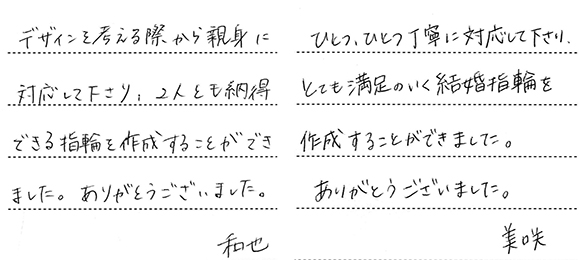 デザインを考える際から親身に
対応して下さり、2人とも納得
できる指輪を作成することができ
ました。ありがとうございました。
和也
ひとつ、ひとつ丁寧に対応して下さり、
とても満足のいく結婚指輪を
作成することができました。
ありがとうございました。
美咲